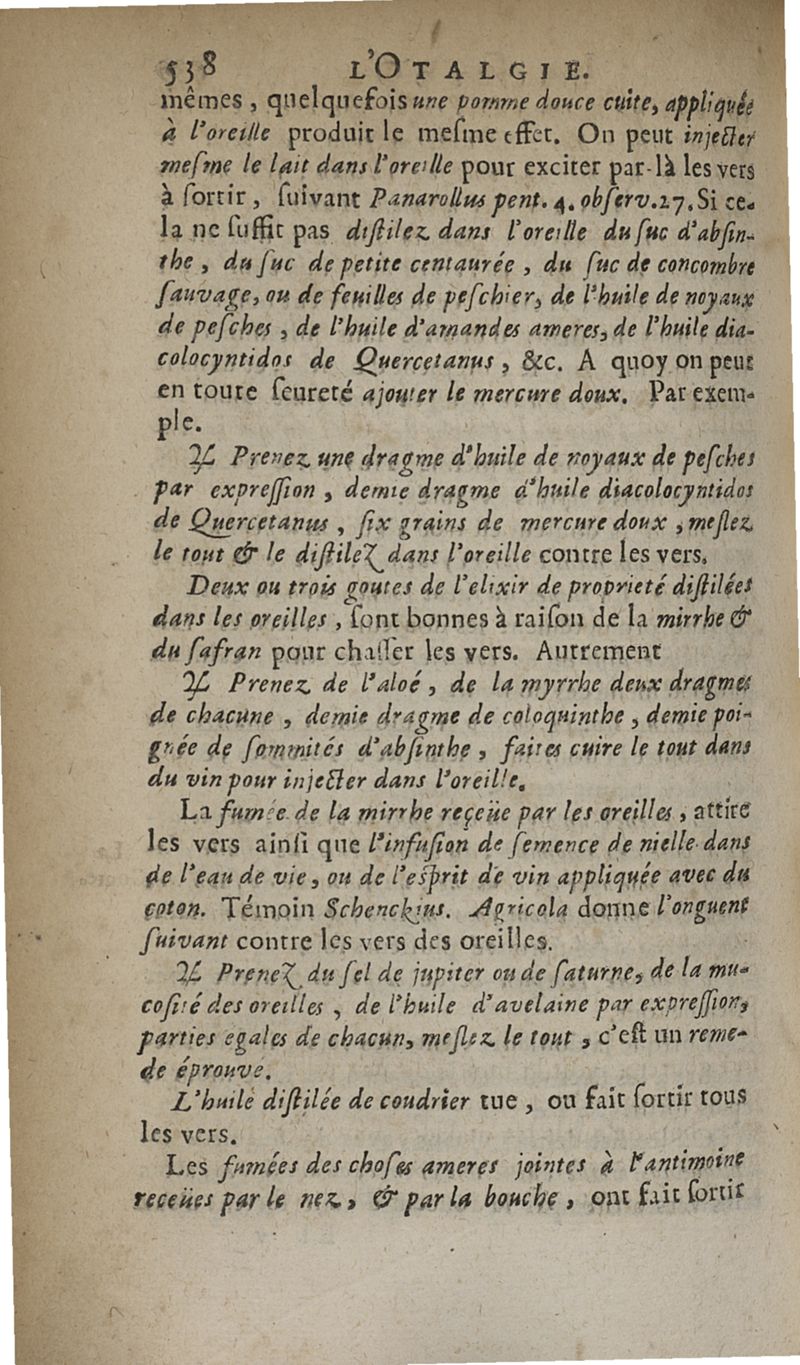 538 L'OTALGIE.
mêmes, quelquefois une pomme douce cuite, appliquée
à l'oreille produit le mesme effet. On peut injecter
mesme le lait dans l'oreille pour exciter par-là les vers
à sortir, suivant Panarollus pent. 4. observ. 27. Si ce-
la ne suffit pas distilez dans l'oreille du suc d'absin-
the, du suc de petite centaurée, du suc de concombre
sauvage, ou de feuilles de peschier, de l'huile de noyaux
de pesches, de l'huile d'amandes ameres, de l'huile dia-
colocyntidos de Quercetanus, &c. A quoy on peut
en toute seureté ajouter le mercure doux. Par exem-
ple.
♃ Prenez une dragme d'huile de noyaux de pesches
par expression, demie dragme d'huile diacolocyntidos
de Quercetanus, six grains de mercure doux, meslez
le tout & le distilez dans l'oreille contre les vers.
Deux ou trois goutes de l'elixir de proprieté distilées
dans les oreilles, sont bonnes à raison de la mirrhe &
du safran pour chasser les vers. Autrement
♃ Prenez de l'aloé, de la myrrhe deux dragmes
de chacune, demie dragme de coloquinthe, demie poi-
gnée de sommités d'absinthe, faites cuire le tout dans
du vin pour injecter dans l'oreille.
La fumée de la mirrhe reçeüe par les oreilles, attire
les vers ainsi que l'infusion de semence de nielle dans
de l'eau de vie, ou de l'esprit de vin appliquée avec du
coton. Témoin Schenckius. Agricola donne l'onguent
suivant contre les vers des oreilles.
♃ Prenez du sel de jupiter ou de saturne, de la mu-
cosité des oreilles, de l'huile d'avelaine par expression,
parties egales de chacun, meslez le tout, c'est un reme-
de éprouve.
L'huile distilée de coudrier tue, ou fait sortir tous
les vers.
Les fumées des choses ameres jointes à l'antimoine
receües par le nez, & par la bouche, ont fait sortir